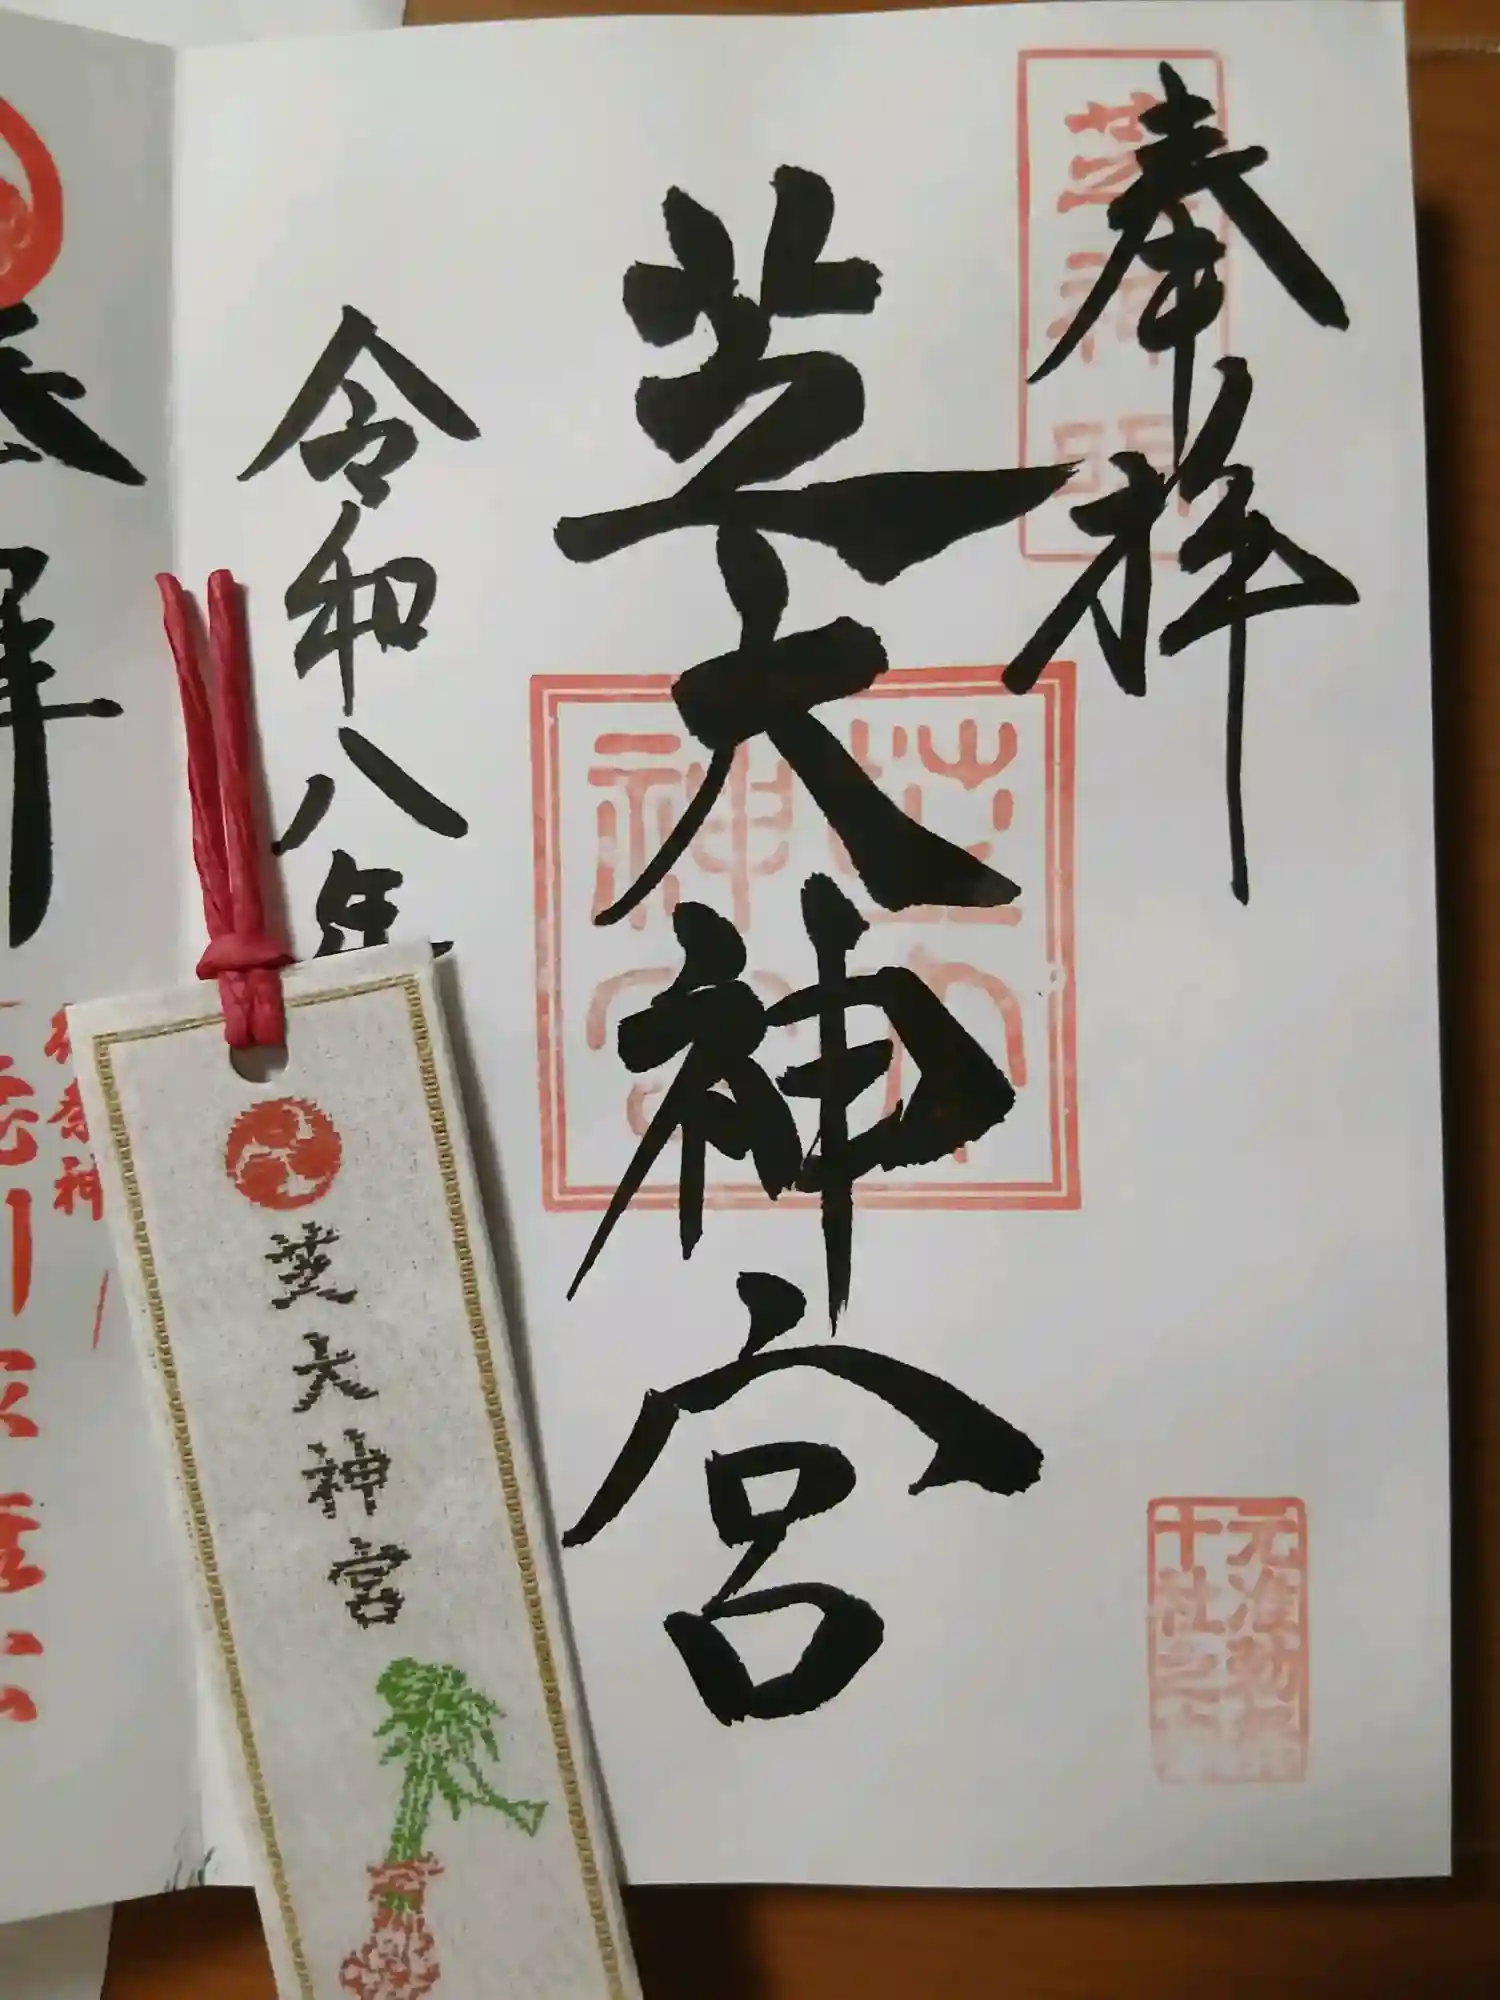 奉拝
芝神明
芝大神宮
芝大
神宮
令和八年
元准勅祭
十社之内
芝大神宮